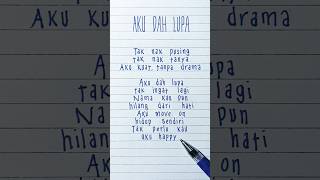 AKU DAH LUPA
Tak nak pusing
tak nak tanya
Aku kuat, tanpa drama
Aku dah lupa
tak ingat lagi
Nama kau pun
hilang dari hati
Aku move on
hidup sendiri
Tak perlu kau
aku happy